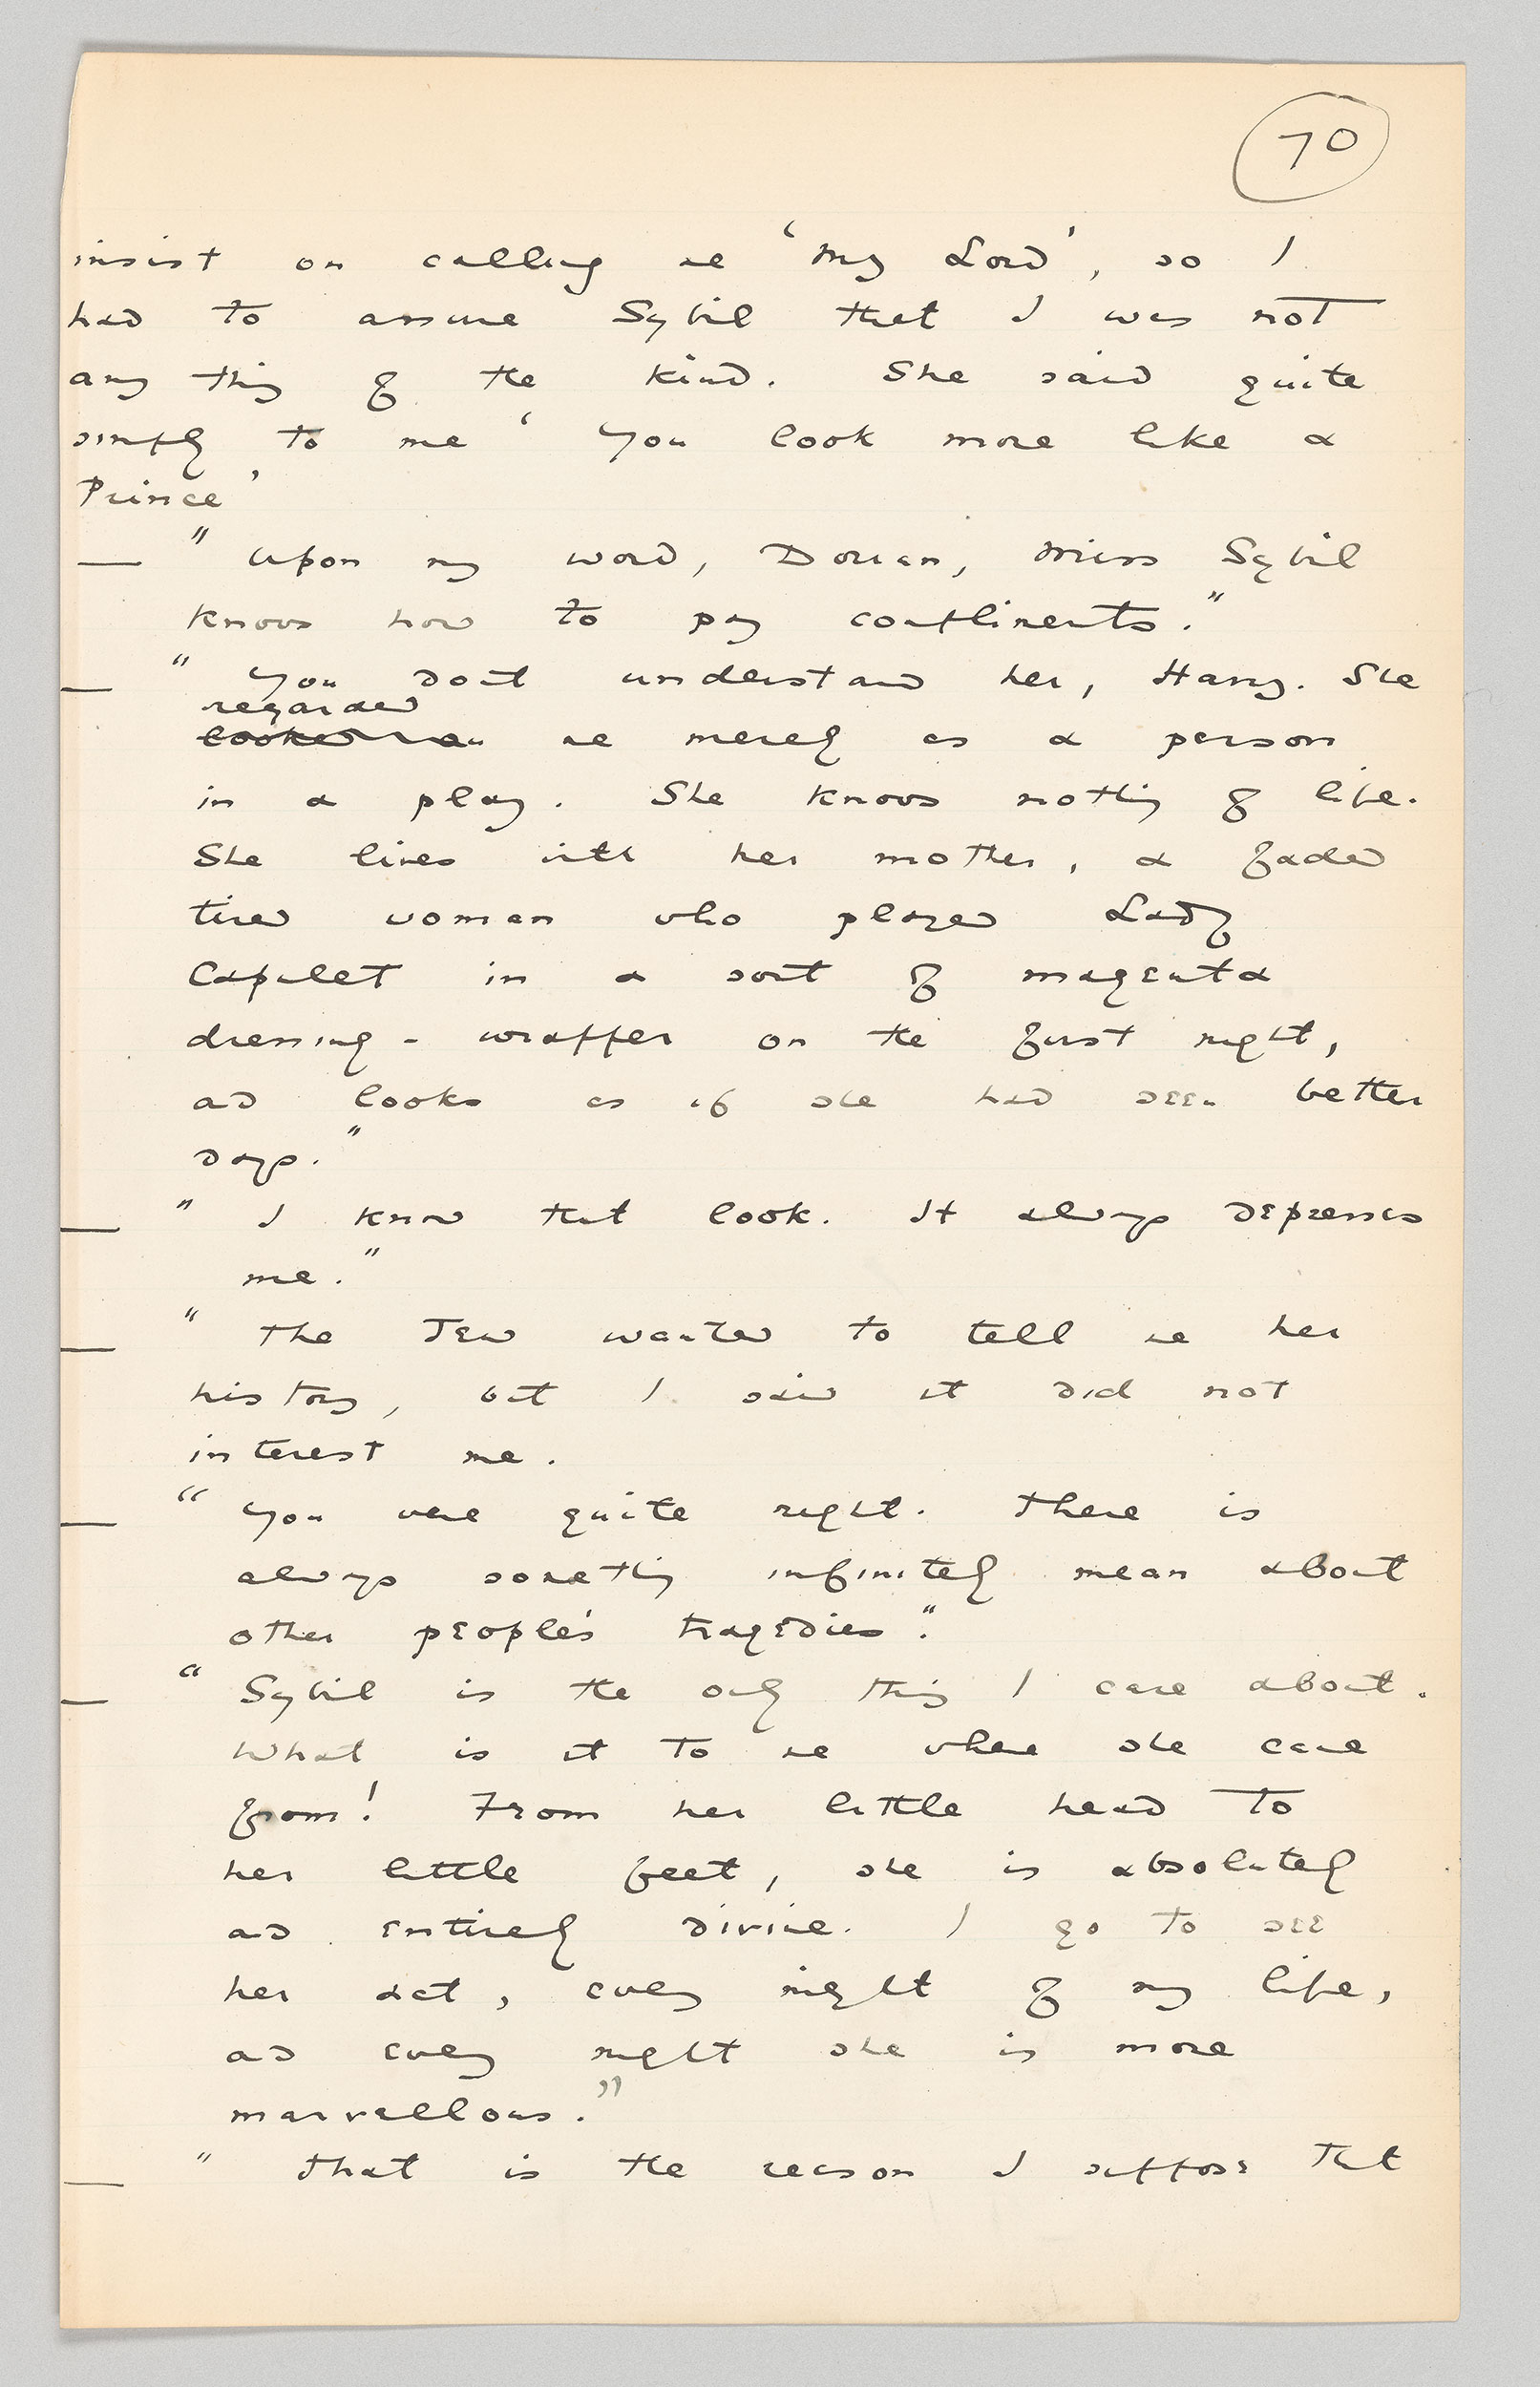 70
insist on calling me 'My Lord', so I
had to assure Sybil that I was not
any thing of the kind. She said quite
simply to me 'You look more like a
Prince'
— " Upon my word, Dorian, Miss Sybil
knows how to pay compliments."
— " You don't understand her, Harry. She
regarded
me merely as a person
in a play. She knows nothing of life.
She lives with her mother, a faded
tired woman who played Lady
Capulet in a sort of magenta
dressing-wrapper on the first night,
and looks as if she had seen better
days."
— " I know that look. It always depresses
me."
— " The Jew wanted to tell me her
history, but I said it did not
interest me.
— " You were quite right. There is
always something infinitely mean about
other people's tragedies."
— " Sybil is the only thing I care about.
What is it to me where she came
from! From her little head to
her little feet, she is absolutely
and entirely divine. I go to see
her act, every night of my life,
and every night she is more
marvellous."
— " That is the reason I suppose that